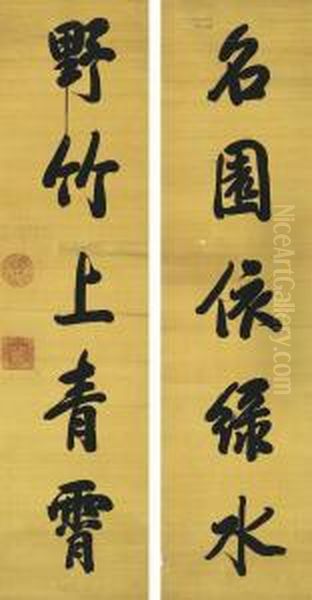 名園依綠水
野竹上青霄
NiceArtGallery.com